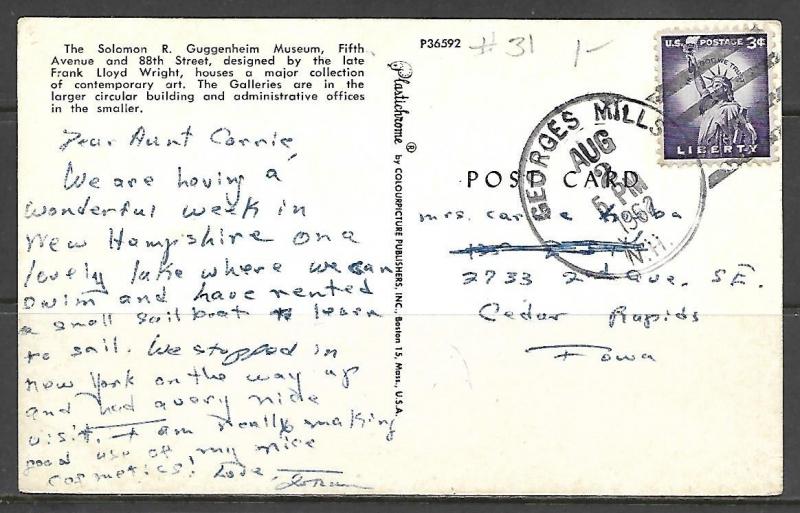 The Solomon R. Guggenheim Museum, Fifth
Avenue and 88th Street, designed by the late
Frank Lloyd Wright, houses a major collection
of contemporary art. The Galleries are in the
larger circular building and administrative offices
in the smaller.
Dear Aunt Carrie,
We are having a
wonderful week in
New Hampshire on a
lovely lake where we can
swim and have rented
a small sailboat to learn
to sail. We stopped in
New York on the way up
and had a very nice
visit. I am really making
good use of my nice
cosmetics! Love,
P36592
#31 1-
Plastichrome ® by COLOURPICTURE PUBLISHERS, INC., Boston 15, Mass., U.S.A.
U.S. POSTAGE 3¢
IN GOD WE TRUST
LIBERTY
GEORGES MILLS
AUG
2
5 PM
1962
N.H.
POST CARD
Mrs. Carrie
2733 2nd Ave. S.E.
Cedar Rapids
Iowa